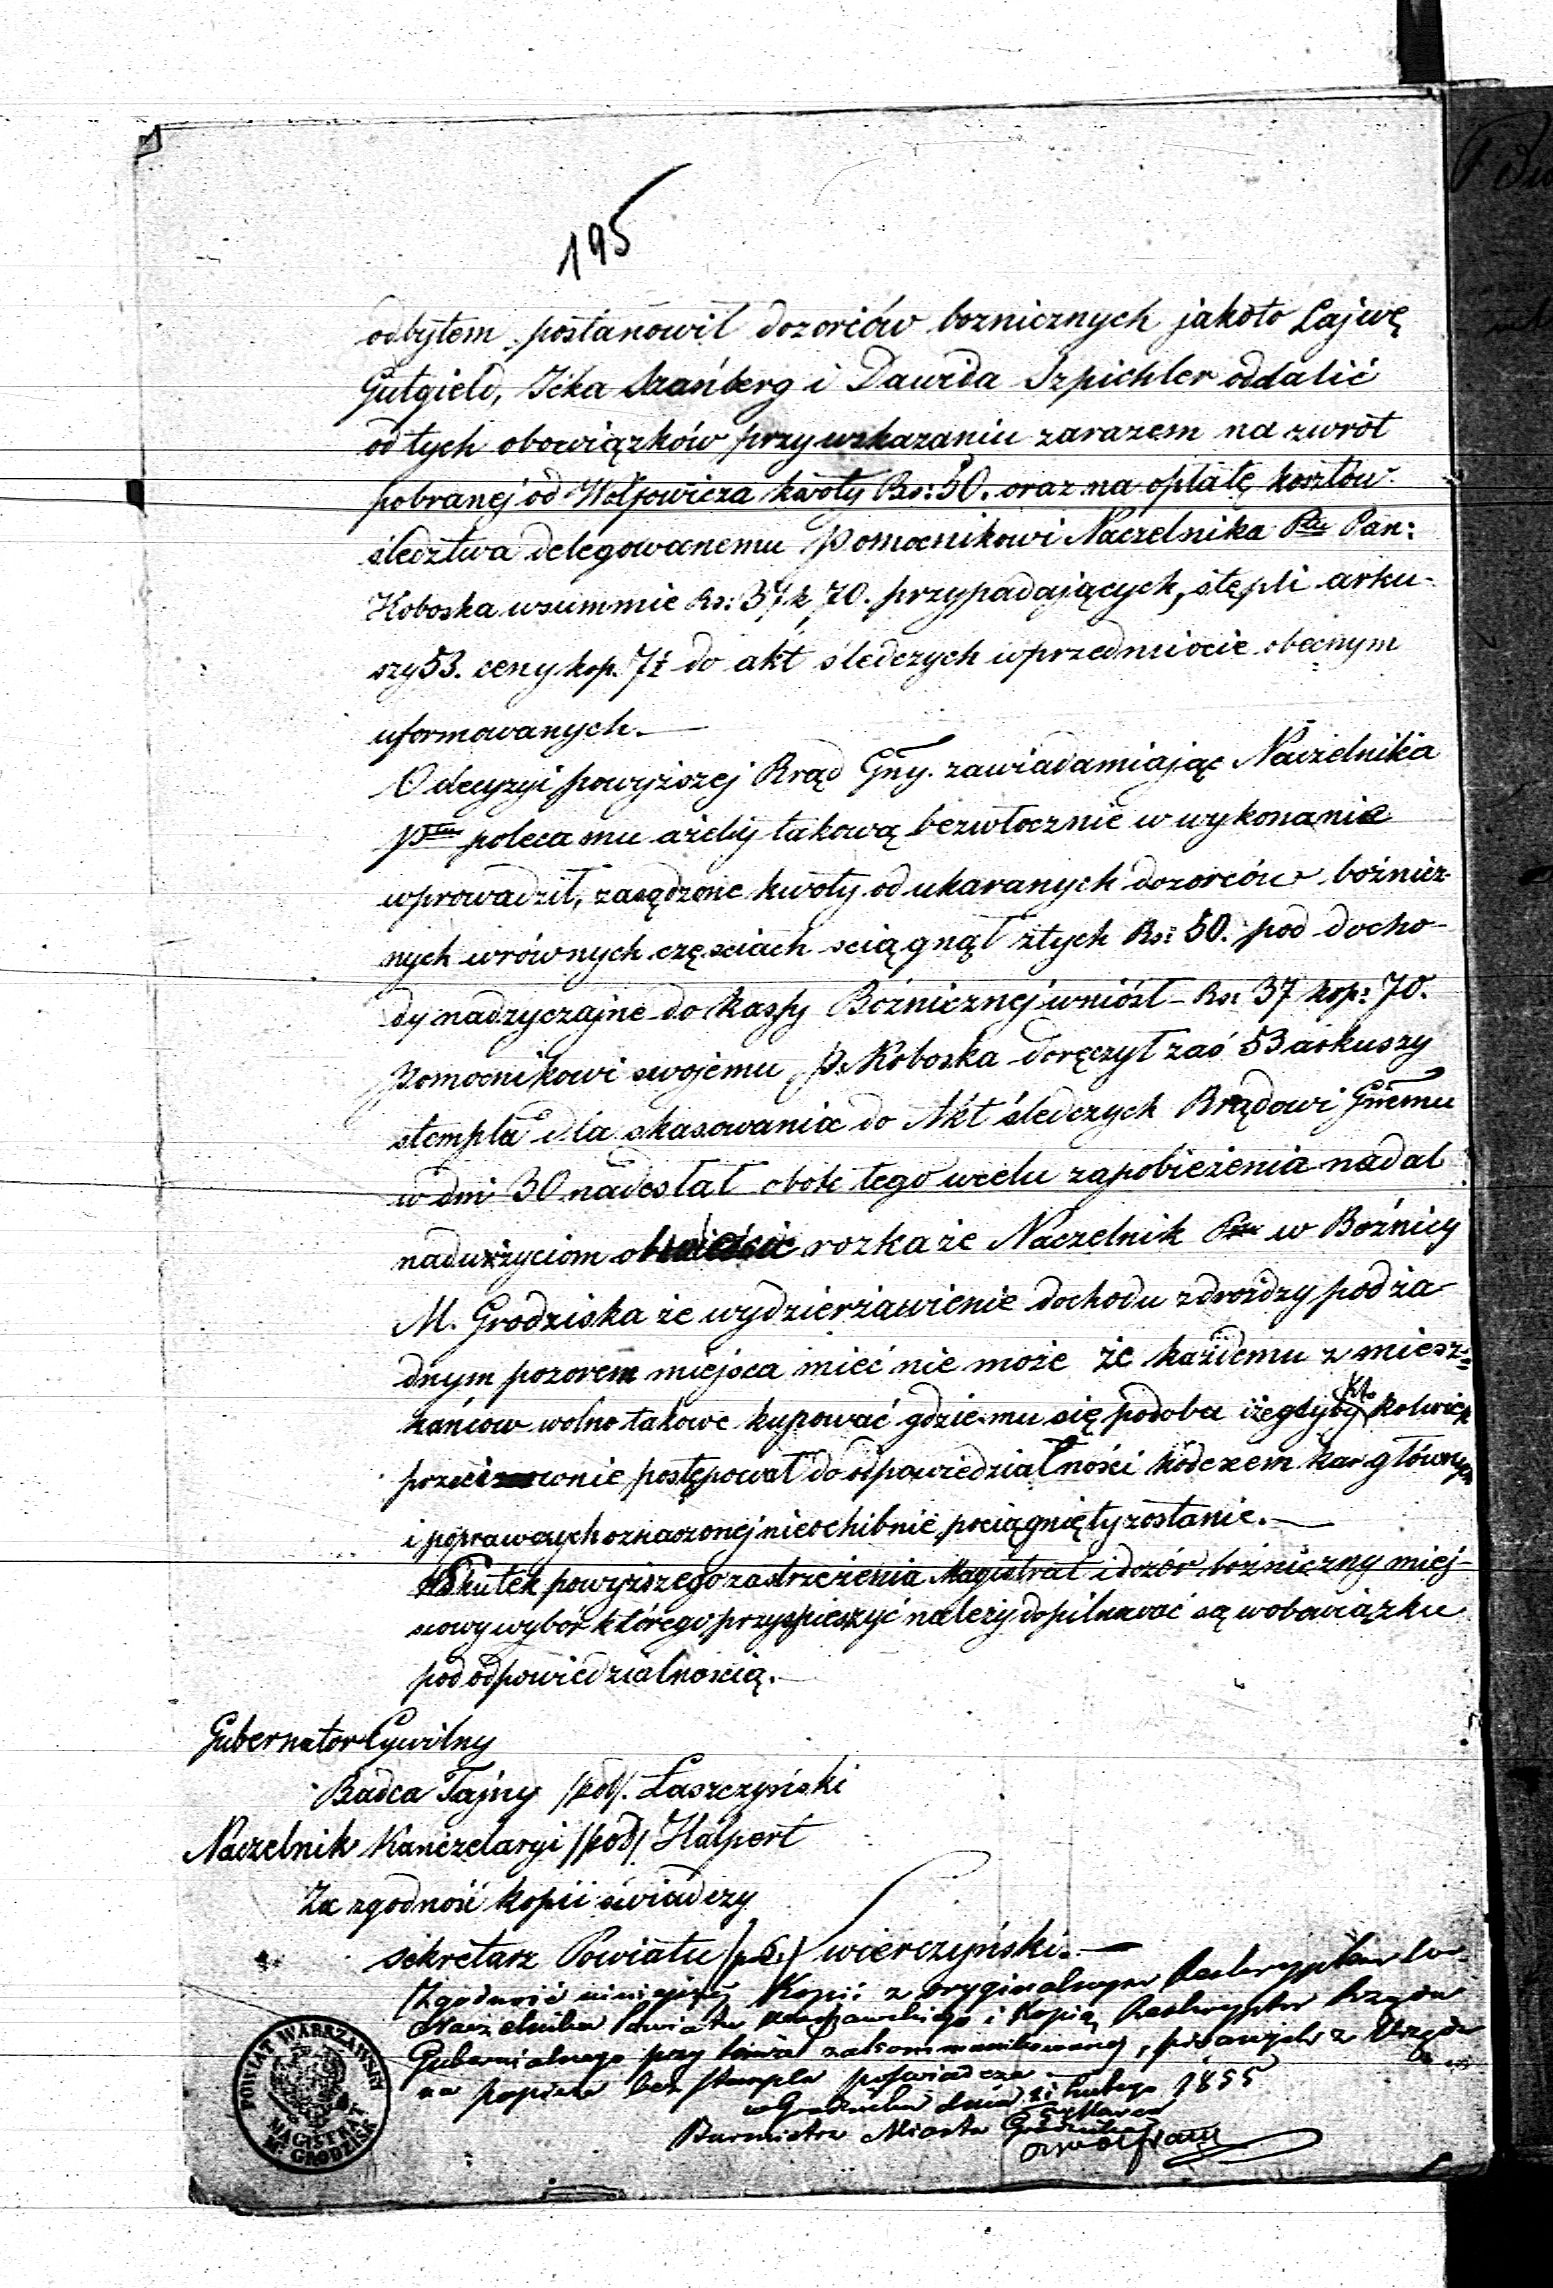 195
odbytem, postanowił dozorców boznicznych jakoto Lajwę
Gutgield, Icka Szańberg i Dawida Szpichler oddalić
od tych obowiązków przy wskazaniu zarazem na zwrot
pobranej od Wolfowicza kwoty Rs: 50. oraz na opłatę kosztów
śledztwa delegowanemu Pomocnikowi Naczelnika Ptu Pan:
Koboska w summie Rs: 37 k 70. przypadających, stępli arku-
szy 53. ceny kop. 7½ do akt śledczych w przedmiocie obecnym
uformowanych.—
O decyzyi powyższej Rząd Gny. zawiadamiając Naczelnika
Ptu poleca mu ażeby takową bezwłocznie w wykonanie
wprowadził, zasądzone kwoty od ukaranych dozorców bożnicz-
nych w równych częsciach sciągnął z tych Rs: 50. pod docho-
dy nadzyczajne do kassy Bóżnicznej wniósł – Rs: 37 kop: 70.
Pomocnikowi swojemu P. Koboska doręczył zaś 53 arkuszy
stempla dla skasowania do Akt śledczych Rządowi Gnemu
w dni 30 nadesłał obok tego w celu zapobieżenia nadal
nadużyciom rozkaże Naczelnik Ptu w Bożnicy
M. Grodziska że wydzierżawienie dochodu z drożdzy pod ża-
dnym pozorem miejsca mieć nie może że każdemu z miesz-
kańców wolno takowe kupować gdzie mu się podoba i że gdyby kto kolwiek
przeciwnie postępował do odpowiedzialności kodexem kar głównych
i poprawczych oznaczonej nieochibnie pociągnięty zostanie.—
W skutek powyższego zastrzeżenia Magistrat i dozór bożniczny miej-
scowy wybór którego przyspieszyć należy dopilnować są w obowiązku
pod odpowiedzialnością.—
Gubernator Cywilny
Radca Tajny /pod/. Łaszczyński
Naczelnik Kanczelaryi /pod/ Halpert
Za zgodność kopii świadczy
Sekretarz Powiatu /pod/ Swierczyński.—
Zgodność niniejszej Kopii z oryginalnym Reskryptem
Naczelnika Powiatu Warszawskiego i Kopią Reskryptu Rządu
Gubernialnego przy takowej zakommunikowanej, pisanych z Urzędu
na papierze bez stempla poświadcza
w Grodzisku dnia Lutego 1855
Burmistrz Miasta Grodziska
POWIAT WARSZAWSKI
MAGISTRAT
M. GRODZISK